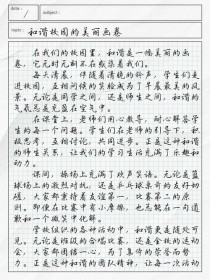 date: /
subject:
topic: 和谐校园的美丽画卷
在我们的校园里，和谐是一幅美丽的画
卷，它无时无刻不在感染着我们。
每天清晨，伴随着清脆的铃声，学生们走
进校园，互相问候的笑脸成为了早晨最美的风
景。无论是同学之间，还是师生之间，和谐的
气氛总是充盈在空气中。
课堂上，老师们用心教导，耐心解答学
生的每一个问题。学生们在老师的引导下，积
极思考，互相讨论，共同进步。正是这种和谐
的师生关系，让我们的学习生活充满了乐趣和
动力。
课间，操场上充满了欢声笑语。无论是篮
球场上的激烈对抗，还是乒乓球桌旁的友好切
磋，大家都秉持着友谊第一，比赛第二的原
则。即使在比赛中有小摩擦，也总能在一句道
歉和一个微笑中化解。
学校组织的各种活动中，和谐更是随处可
见。无论是班级的合唱比赛，还是全校的运动
会，大家都团结一心，为了集体的荣誉而努
力。正是这种和谐的团队精神，让每一次活动